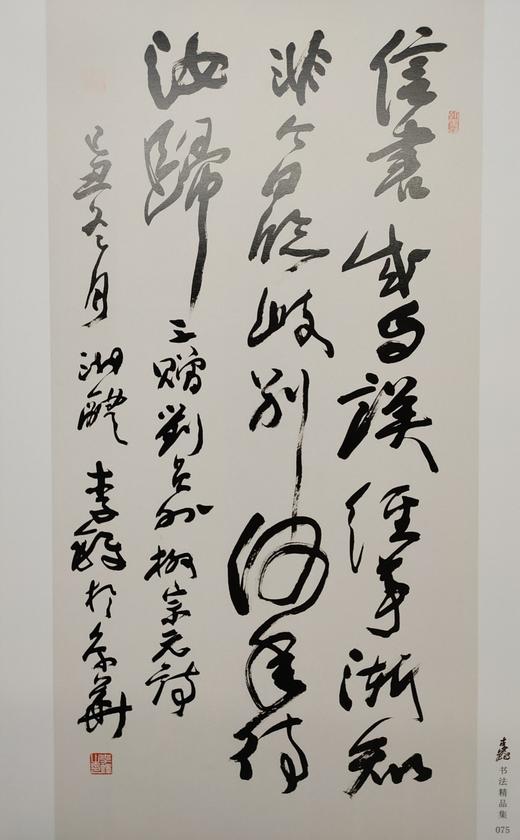 信書成自誤經事漸知
非今日臨岐別何年待
汝歸
三贈劉員外柳宗元詩
己丑冬月湘醴李鐸於京華
李鐸书法精品集
075